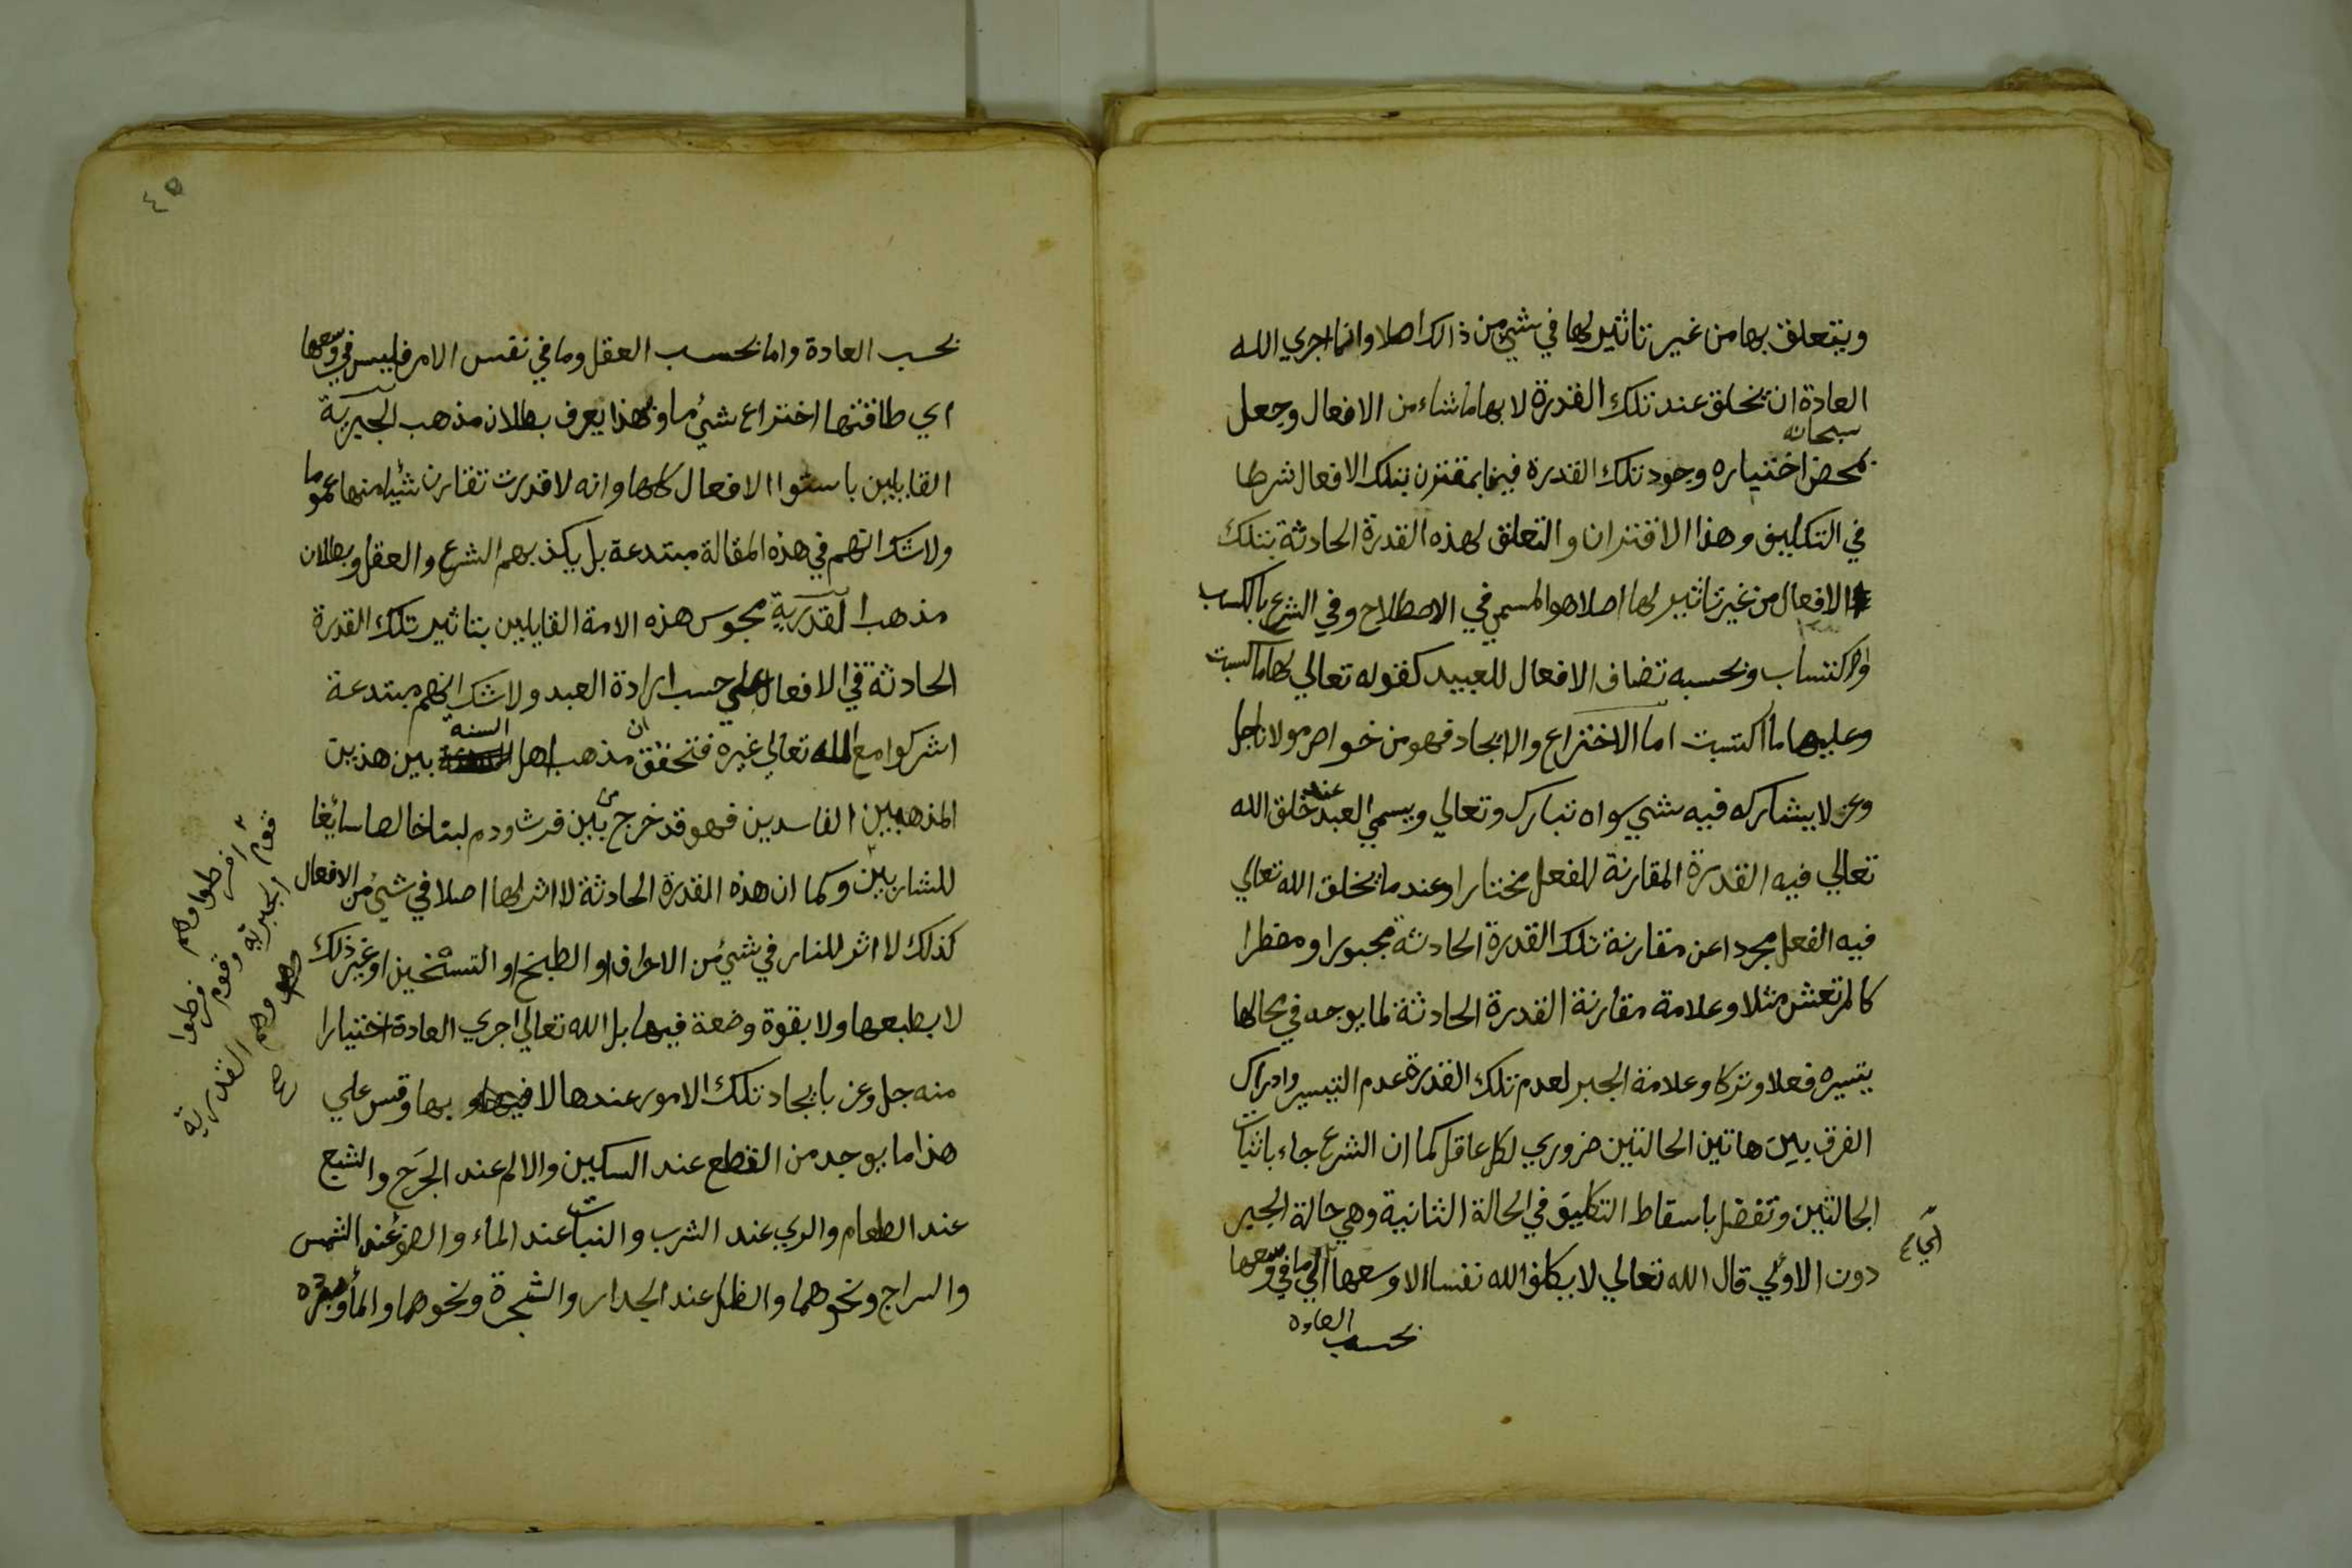 ويتعلق بها من غير تاثير لها في شيء من ذالك اصلا وانما اجري الله
العادة ان يخلق عند تلك القدرة لا بها ما شاء من الافعال وجعل
سبحانه
بمحض اختياره وجود تلك القدرة فينا بمقترن بتلك الافعال شرطا
في التكليف وهذا الاقتران والتعلق لهذه القدرة الحادثة بتلك
الافعال من غير تاثير لها اصلا هو المسمي في الاصطلاح وفي الشرع بالكسب
والاكتساب وبحسبه تضاف الافعال للعبيد كقوله تعالي لها ما كسبت
وعليها ما اكتسبت اما الاختراع والايجاد فهو من خواص مولانا جل
وعز لا يشاركه فيه شي سواه تبارك وتعالي ويسمي العبد عند خلق الله
تعالي فيه القدرة المقارنة للفعل مختارا وعندما يخلق الله تعالي
فيه الفعل مجردا عن مقارنة تلك القدرة الحادثة مجبورا ومضطرا
كالمرتعش مثلا وعلامة مقارنة القدرة الحادثة لما يوجد في محالها
يتسيره فعلا وتركا وعلامة الجبر لعدم تلك القدرة عدم التيسير وادراك
الفرق بين هاتين الحالتين ضروري لكل عاقل كما ان الشرع جاء باثبات
الحالتين وتفضل باسقاط التكليف في الحالة الثانية وهي حالة الجبر
دون الاولي قال الله تعالي لا يكلف الله نفسا الا وسعها اي ما في وسعها
بحسب العادة
بحسب العادة واما بحسب العقل وما في نفس الامر فليس في وسعها
اي طاقتها اختراع شيء ما وبهذا يعرف بطلان مذهب الجبرية
القايلين باستوا الافعال كلها وانه لا قدرت تقارن شيا منها عموما
ولا شك انهم في هذه المقالة مبتدعة بل يكذبهم الشرع والعقل وبطلان
مذهب القدرية مجوس هذه الامة القايلين بتاثير تلك القدرة
الحادثة في الافعال علي حسب ارادة العبد ولا شك انهم مبتدعة
اشركوا مع الله تعالي غيره فتحقق ان مذهب اهل السنة بين هذين
المذهبين الفاسدين فهو قد خرج من بين فرث ودم لبنا خالصا سائغا
للشاربين وكما ان هذه القدرة الحادثة لا اثر لها اصلا في شيء من الافعال
كذلك لا اثر للنار في شيء من الاحراق او الطبخ او التسخين او غير ذلك
لا بطبعها ولا بقوة وضعة فيها بل الله تعالي اجري العادة اختيارا
منه جل وعز بايجاد تلك الامور عندها لا فيها ولا بها وقس علي
هذا ما يوجد من القطع عند السكين والالم عند الجرح والشبع
عند الطعام والري عند الشرب والنبات عند الماء والضوء عند الشمس
والسراج ونحوهما والظل عند الجدار والشجرة ونحوهما والماء
قوم افرطوا وهم
الجبرية وقوم فرطوا
وهم القدرية
٤٥